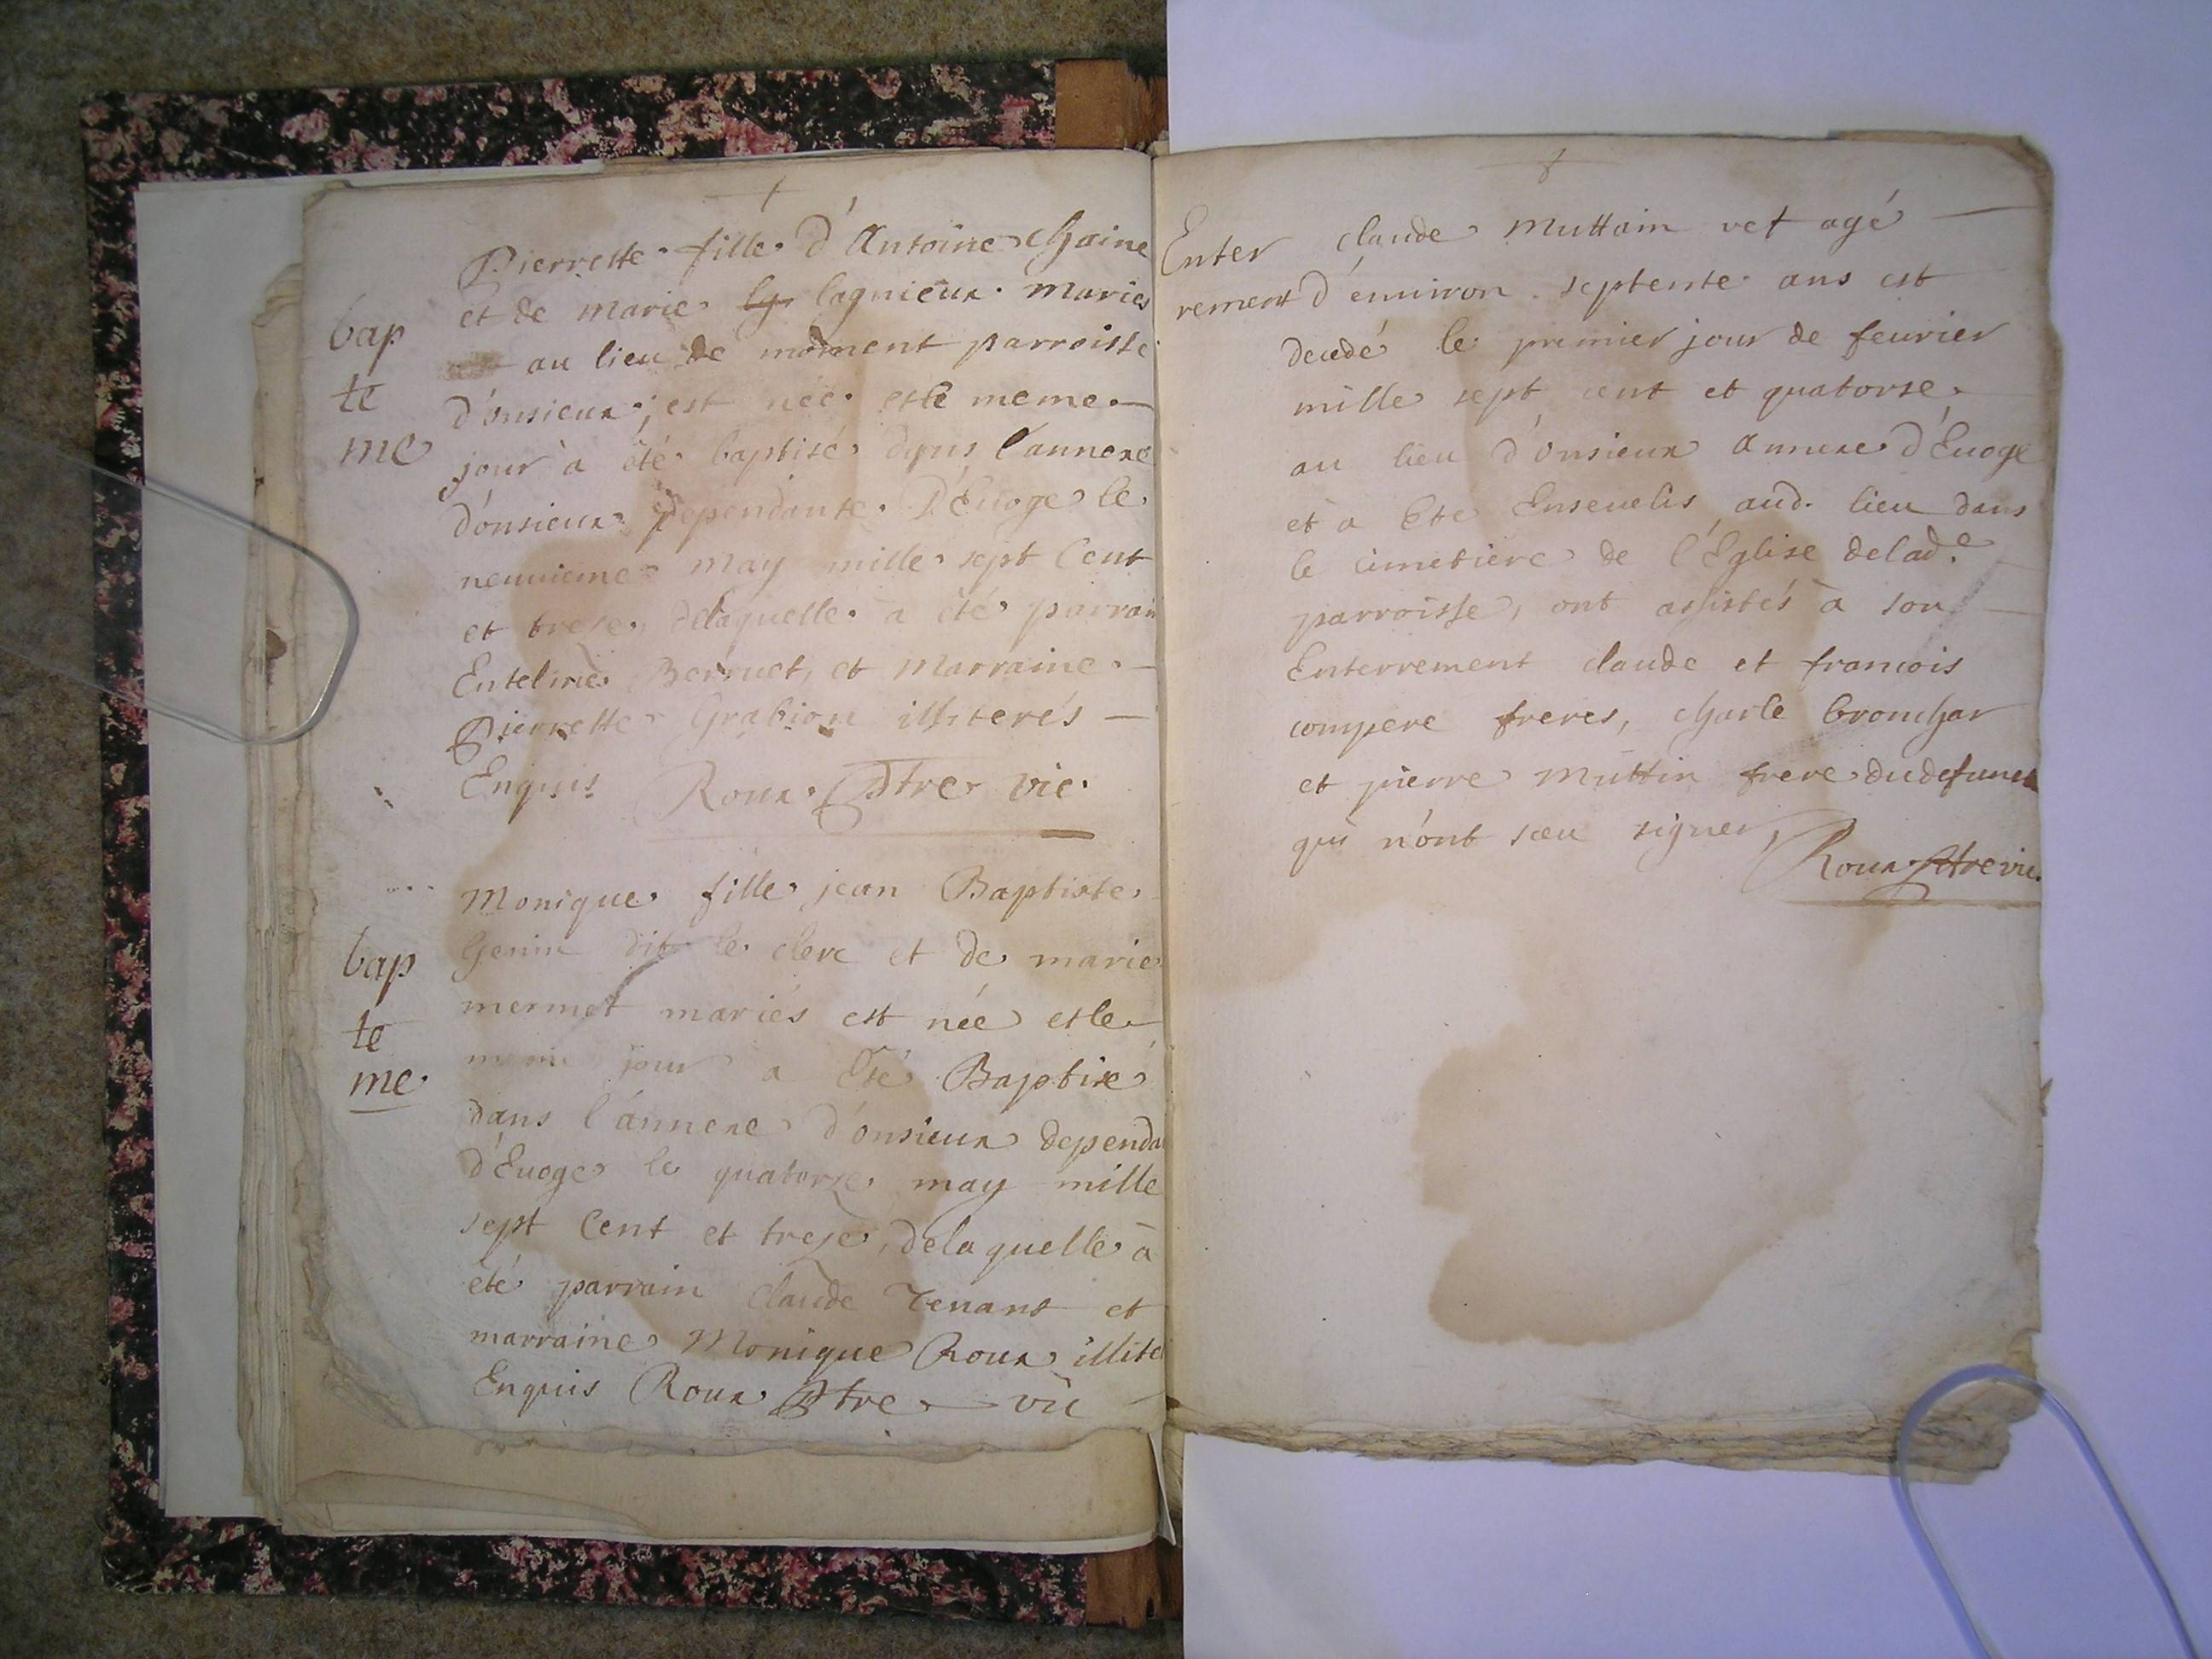 Pierrette fille d'Antoine chaine
et de marie lagnieux mariés
au lieu de moment parroisse
bap
te
me
d'onsieux; est née et le meme
jour à été baptisé dans l'annexe
d'onsieux dependante d'Euoge le
neuuieme may mille sept Cent
et treze, delaquelle a été parrain
Berruet, et Marraine
Pierrette Grabion illiterés
Enquis Roux Ptre vic.
Monique fille jean Baptiste
Genin dit le clerc et de marie
mermet mariés est née et le
mem jour a Été Baptisé
bap
te
me
dans l'annexe d'onsieux dependa
d'Euoge le quatorze may mille
sept Cent et treze, delaquelle à
été parrain Claude Tenant et
marraine Monique Roux illite
Enquis Roux Ptre vic
Enter
rement
claude Muttain vef agé
d'enuiron septente ans est
decedé le premier jour de feurier
mille sept cent et quatorse
au lieu d'Onsieux Annexe d'Euoge
et a Ete Enseuelis aud. lieu dans
le cimetiere de l'Eglise de lad.e
parroisse, ont assistés à son
Enterrement claude et francois
compere freres, charle bronchar
et pierre Muttin frere du defunct
qui n'ont sceu signer,
Roux Ptre vic.